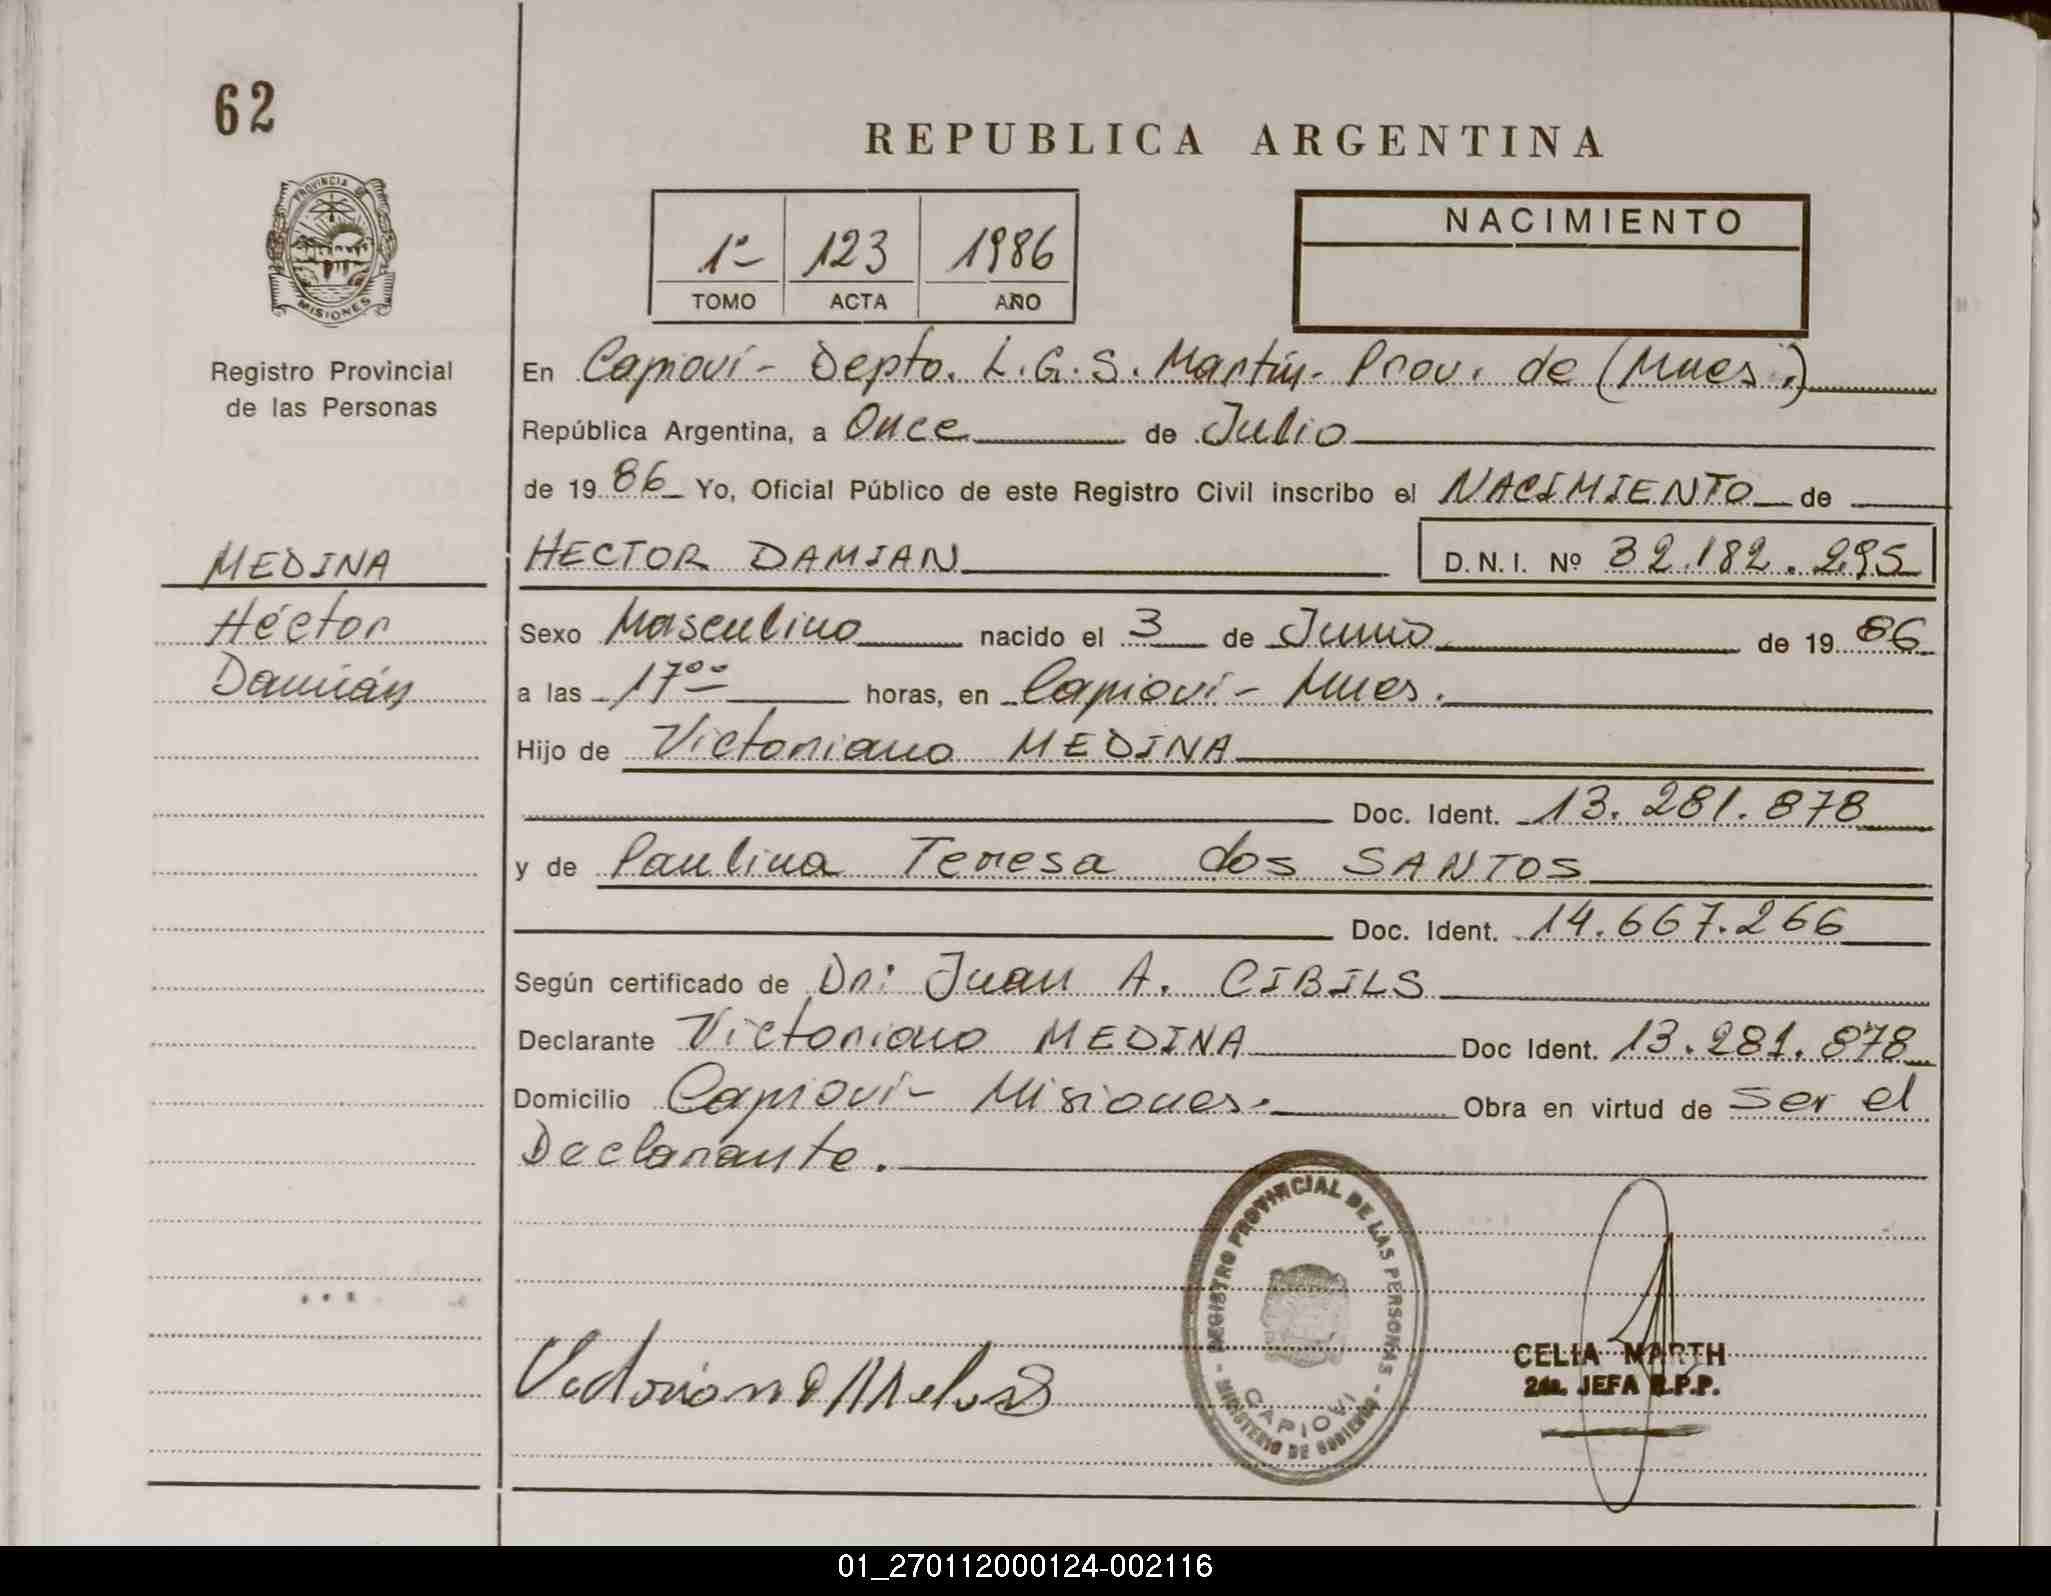 62
REPUBLICA ARGENTINA
PROVINCIA DE
MISIONES
1º 123 1986
TOMO ACTA AÑO
NACIMIENTO
Registro Provincial
de las Personas
En Capioví - Depto. L.G.S. Martín - Prov. de (Mnes.)
República Argentina, a Once de Julio
de 1986 Yo, Oficial Público de este Registro Civil inscribo el NACIMIENTO de
MEDINA
HECTOR DAMIAN D.N.I. Nº 32.182.295
Héctor
Damián
Sexo Masculino nacido el 3 de Junio de 1986
a las 17ºº horas, en Capioví - Mnes.
Hijo de Victoriano MEDINA
Doc. Ident. 13.281.878
y de Paulina Teresa dos SANTOS
Doc. Ident. 14.667.266
Según certificado de Dr: Juan A. CIBILS
Declarante Victoriano MEDINA Doc Ident. 13.281.878
Domicilio Capioví - Misiones. Obra en virtud de Ser el
Declarante.
REGISTRO PROVINCIAL DE LAS PERSONAS - MINISTERIO DE GOBIERNO -
CAPIOVI
CELIA MARTH
2da. JEFA R.P.P.
01_270112000124-002116